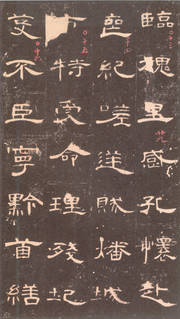 臨槐里感孔懷赴
喪紀嗟逆賊燔城
特受命理殘圮
芟不臣寧黔首繕